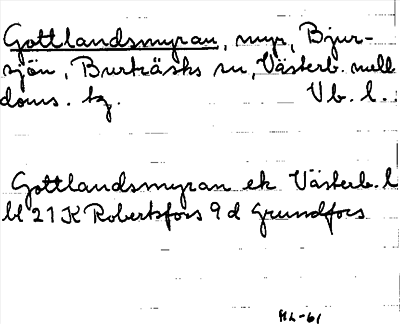 Gottlandsmyran, myr, Bjur-
sjön, Burträsks sn, Västerb. mell
doms. tg. Vb. l.
Gottlandsmyran ek Västerb. l
bl 21 K Robertsfors 9 d Grundfors
HL-61